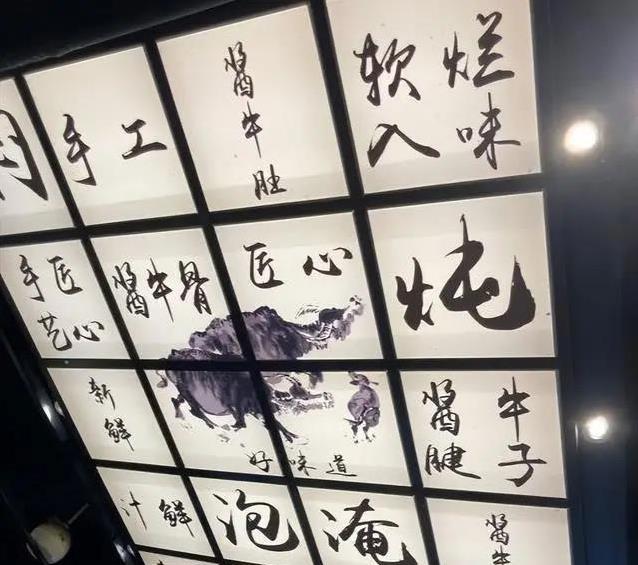 手工
醬牛肚
软烂
入味
手匠
艺心
醬牛骨
匠心
炖
新鲜
好味道
醬牛
腱子
汁鲜
泡
淹
醬牛